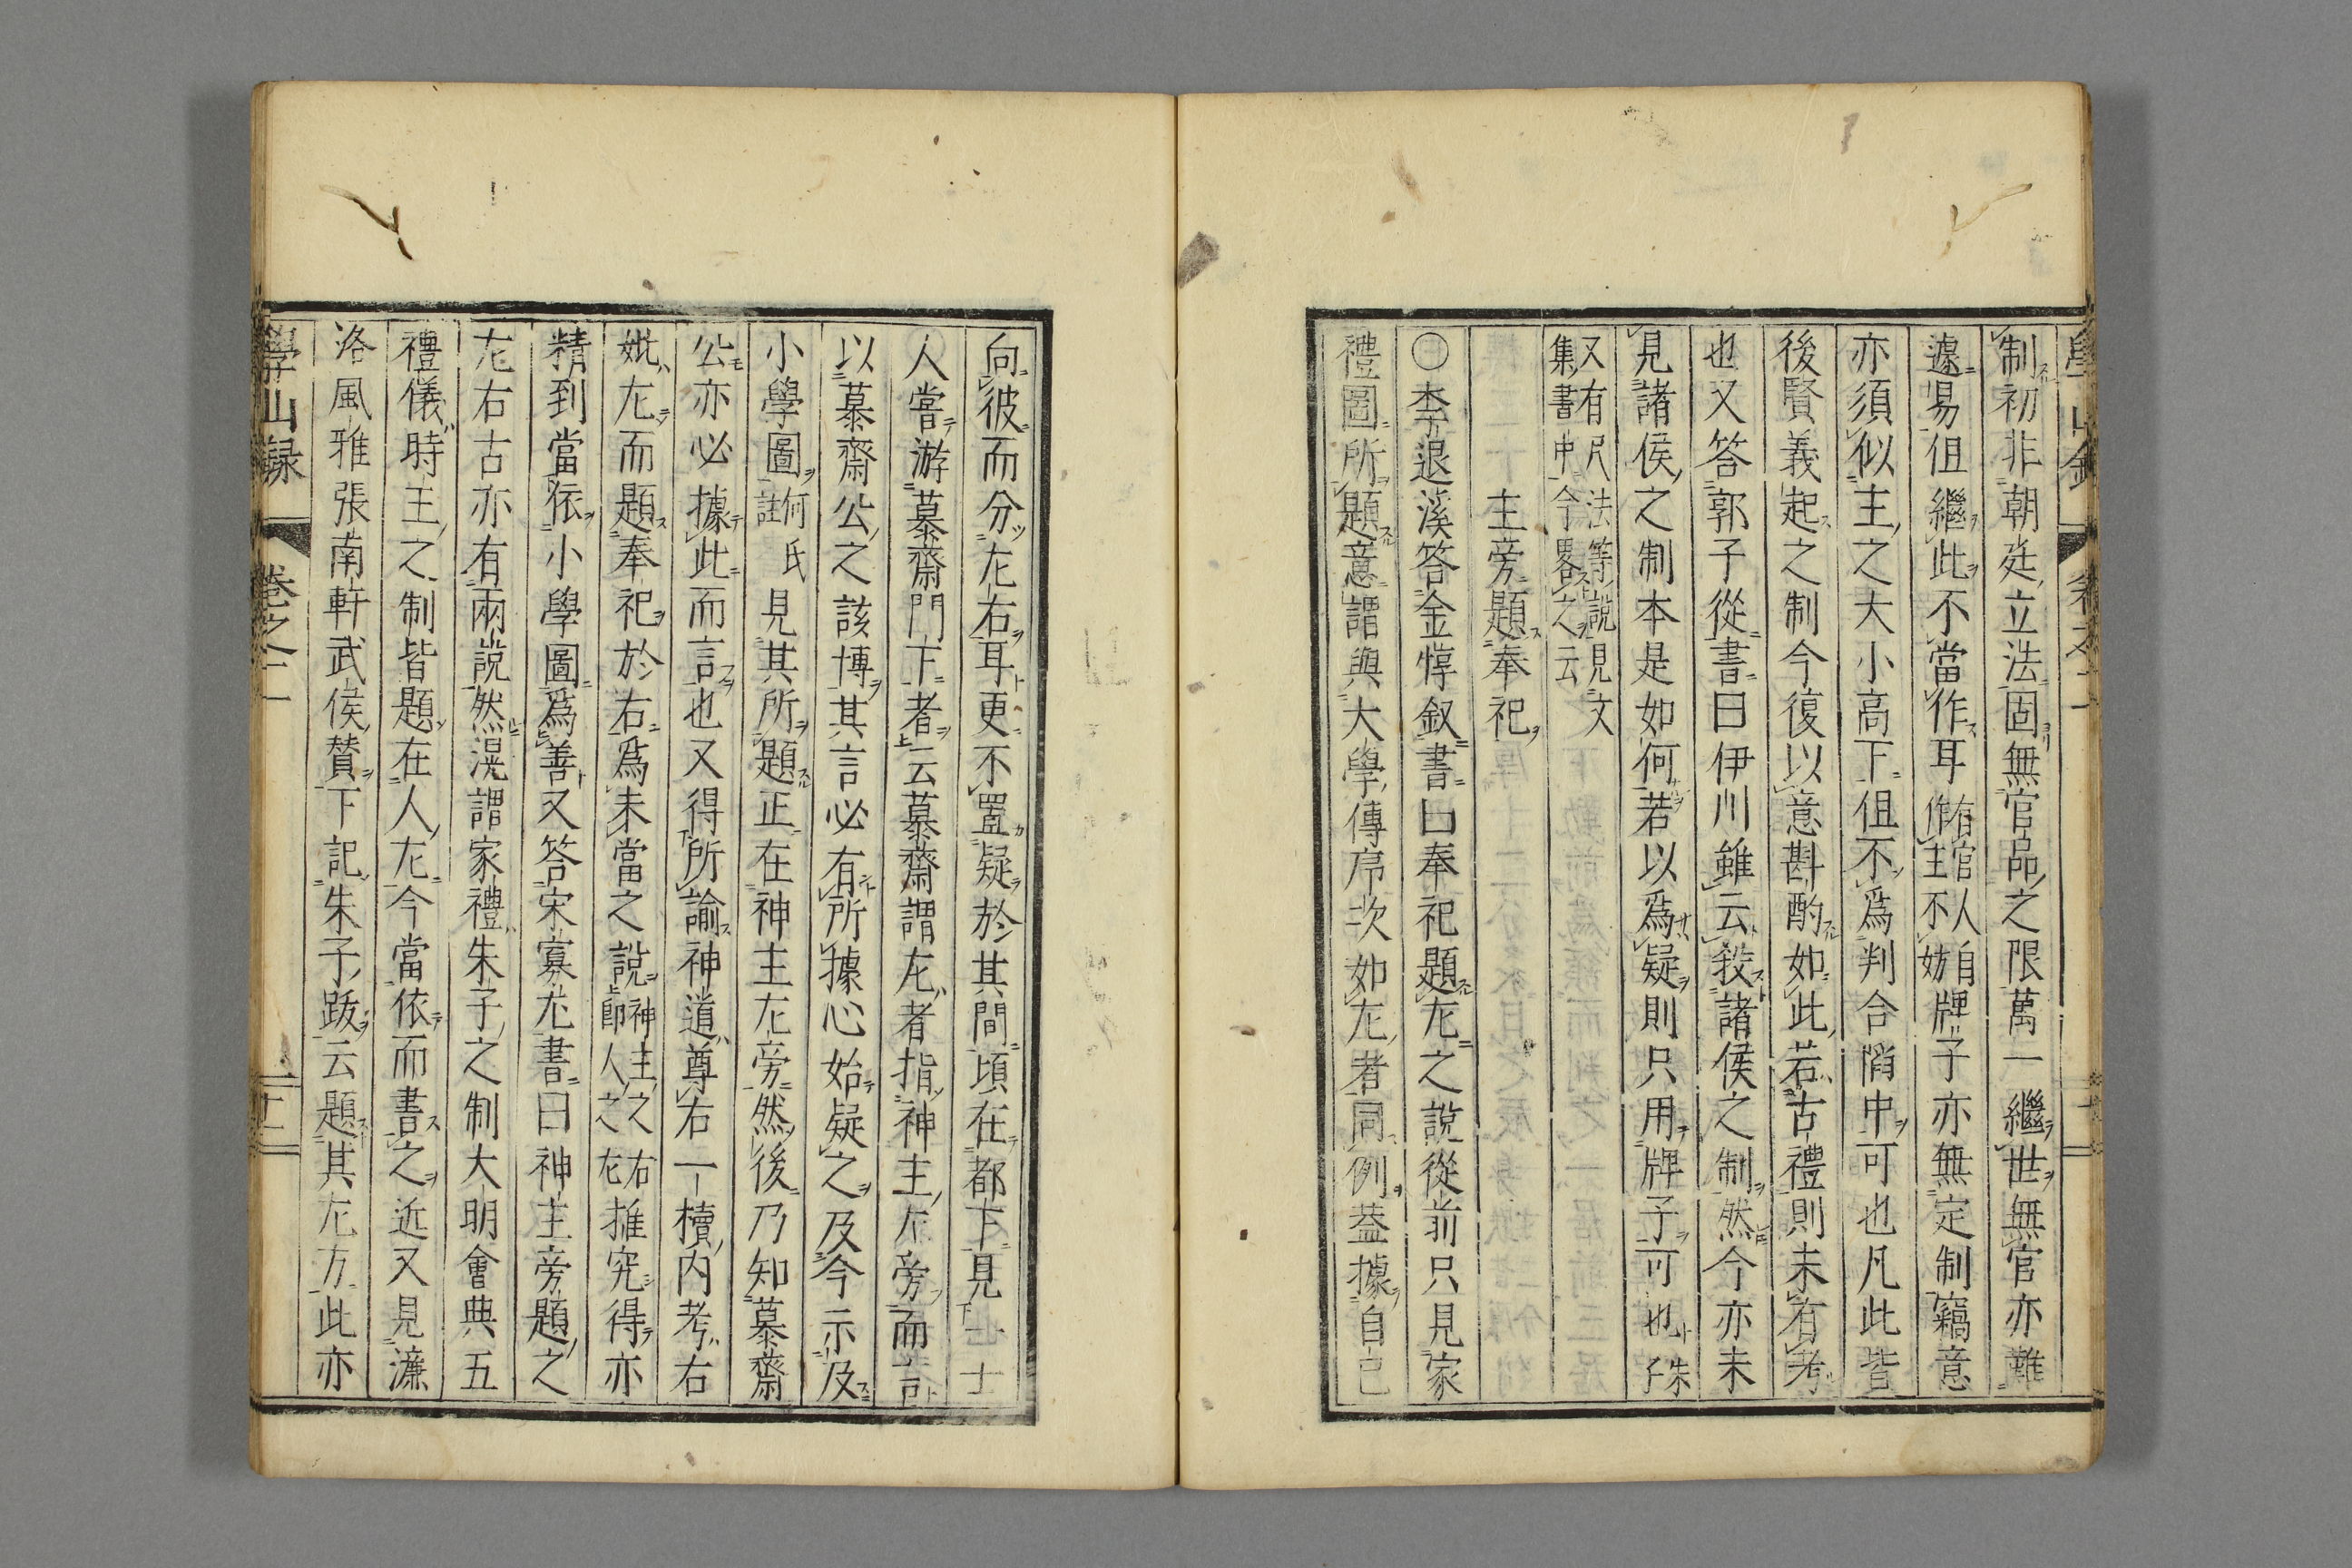 制初非朝廷立法固無官品之限萬一繼世無官亦難
遽易但繼此不當作耳有官人自作主不妨牌子亦無定制竊意
亦須似主之大小高下但不爲判合陷中可也凡此皆
後賢義起之制今復以意斟酌如此若古禮則未有考
也又答郭子從書曰伊川雖云殺諸侯之制然今亦未
見諸侯之制本是如何若以爲疑則只用牌子可也朱子
又有尺法等說見文集書中今畧之云
主旁題奉祀
〇李退溪答金惇叙書曰奉祀題左之說從前只見家
禮圖所題意謂與大學傳序次如左者同例葢據自己
向彼而分左右耳更不置疑於其間頃在都下見一士
人嘗游慕齋門下者云慕齋謂左者指神主左旁而言
以慕齋公之該博其言必有所據心始疑之及今示及
小學圖何氏註見其所題正在神主左旁然後乃知慕齋
公亦必據此而言也又得所諭神道尊右一櫝內考右
妣左而題奉祀於右爲未當之說神主之右即人之左推究得亦
精到當依小學圖爲善又答宋寡尤書曰神主旁題之
左右古亦有兩說然滉謂家禮朱子之制大明會典五
禮儀時王之制皆題在人左今當依而書之近又見濂
洛風雅張南軒武侯贊下記朱子跋云題其左方此亦
學山録 卷之二 十二